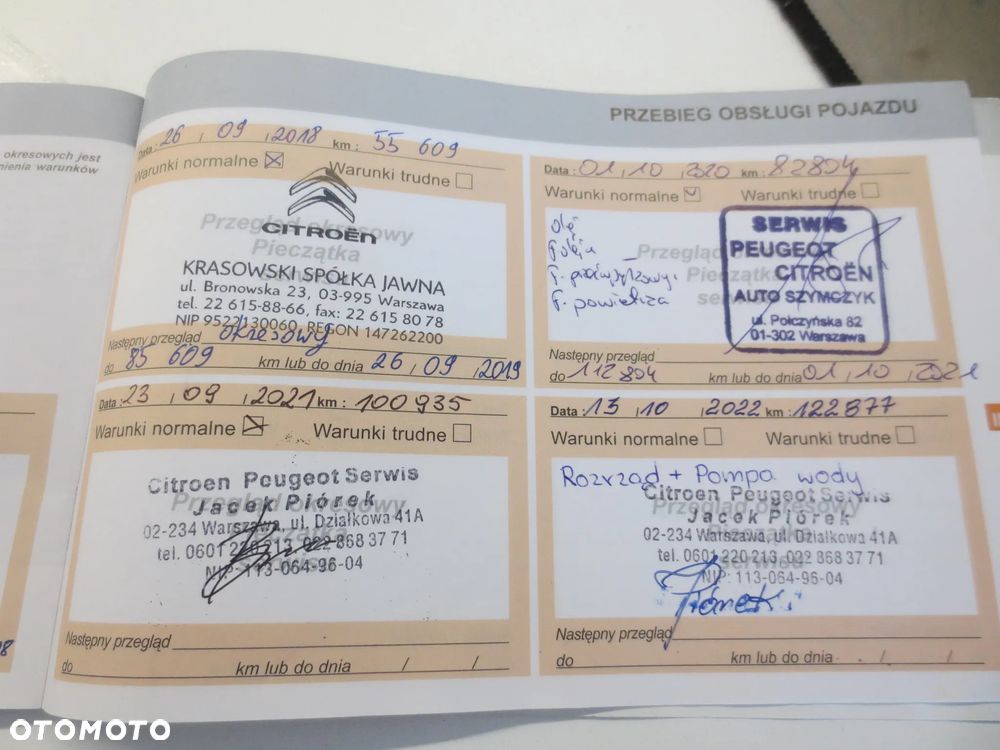 PRZEBIEG OBSŁUGI POJAZDU
okresowych jest
nienia warunków
Data : 26 , 09 , 2018 km : 55 609
Warunki normalne ☒ Warunki trudne ☐
Przegląd okresowy
Pieczątka
CITROËN
KRASOWSKI SPÓŁKA JAWNA
ul. Bronowska 23, 03-995 Warszawa
tel. 22 615-88-66, fax: 22 615 80 78
NIP 9522130060, REGON 147262200
Następny przegląd okresowy
do 85 609 km lub do dnia 26 , 09 , 2019
Data : 01 , 10 , 2020 km : 82804
Warunki normalne ☑ Warunki trudne ☐
Przegląd okresowy
Pieczątka
serwisu
Olej
F. powietrza
SERWIS
PEUGEOT
CITROËN
AUTO SZYMCZYK
ul. Połczyńska 82
01-302 Warszawa
Następny przegląd
do 112804 km lub do dnia 01 , 10 , 2021
Data : 23 , 09 , 2021 km : 100935
Warunki normalne ☒ Warunki trudne ☐
Przegląd okresowy
Citroen Peugeot Serwis
Jacek Piórek
02-234 Warszawa, ul. Działkowa 41A
tel. 0601 220 213, 022 868 37 71
NIP: 113-064-96-04
Następny przegląd
do km lub do dnia / /
Data : 13 , 10 , 2022 km : 122877
Warunki normalne ☐ Warunki trudne ☐
Rozrząd + Pompa wody
Przegląd okresowy
Pieczątka
serwisu
Citroen Peugeot Serwis
Jacek Piórek
02-234 Warszawa, ul. Działkowa 41A
tel. 0601 220 213, 022 868 37 71
NIP: 113-064-96-04
Piórek
Następny przegląd
do km lub do dnia / /
OTOMOTO